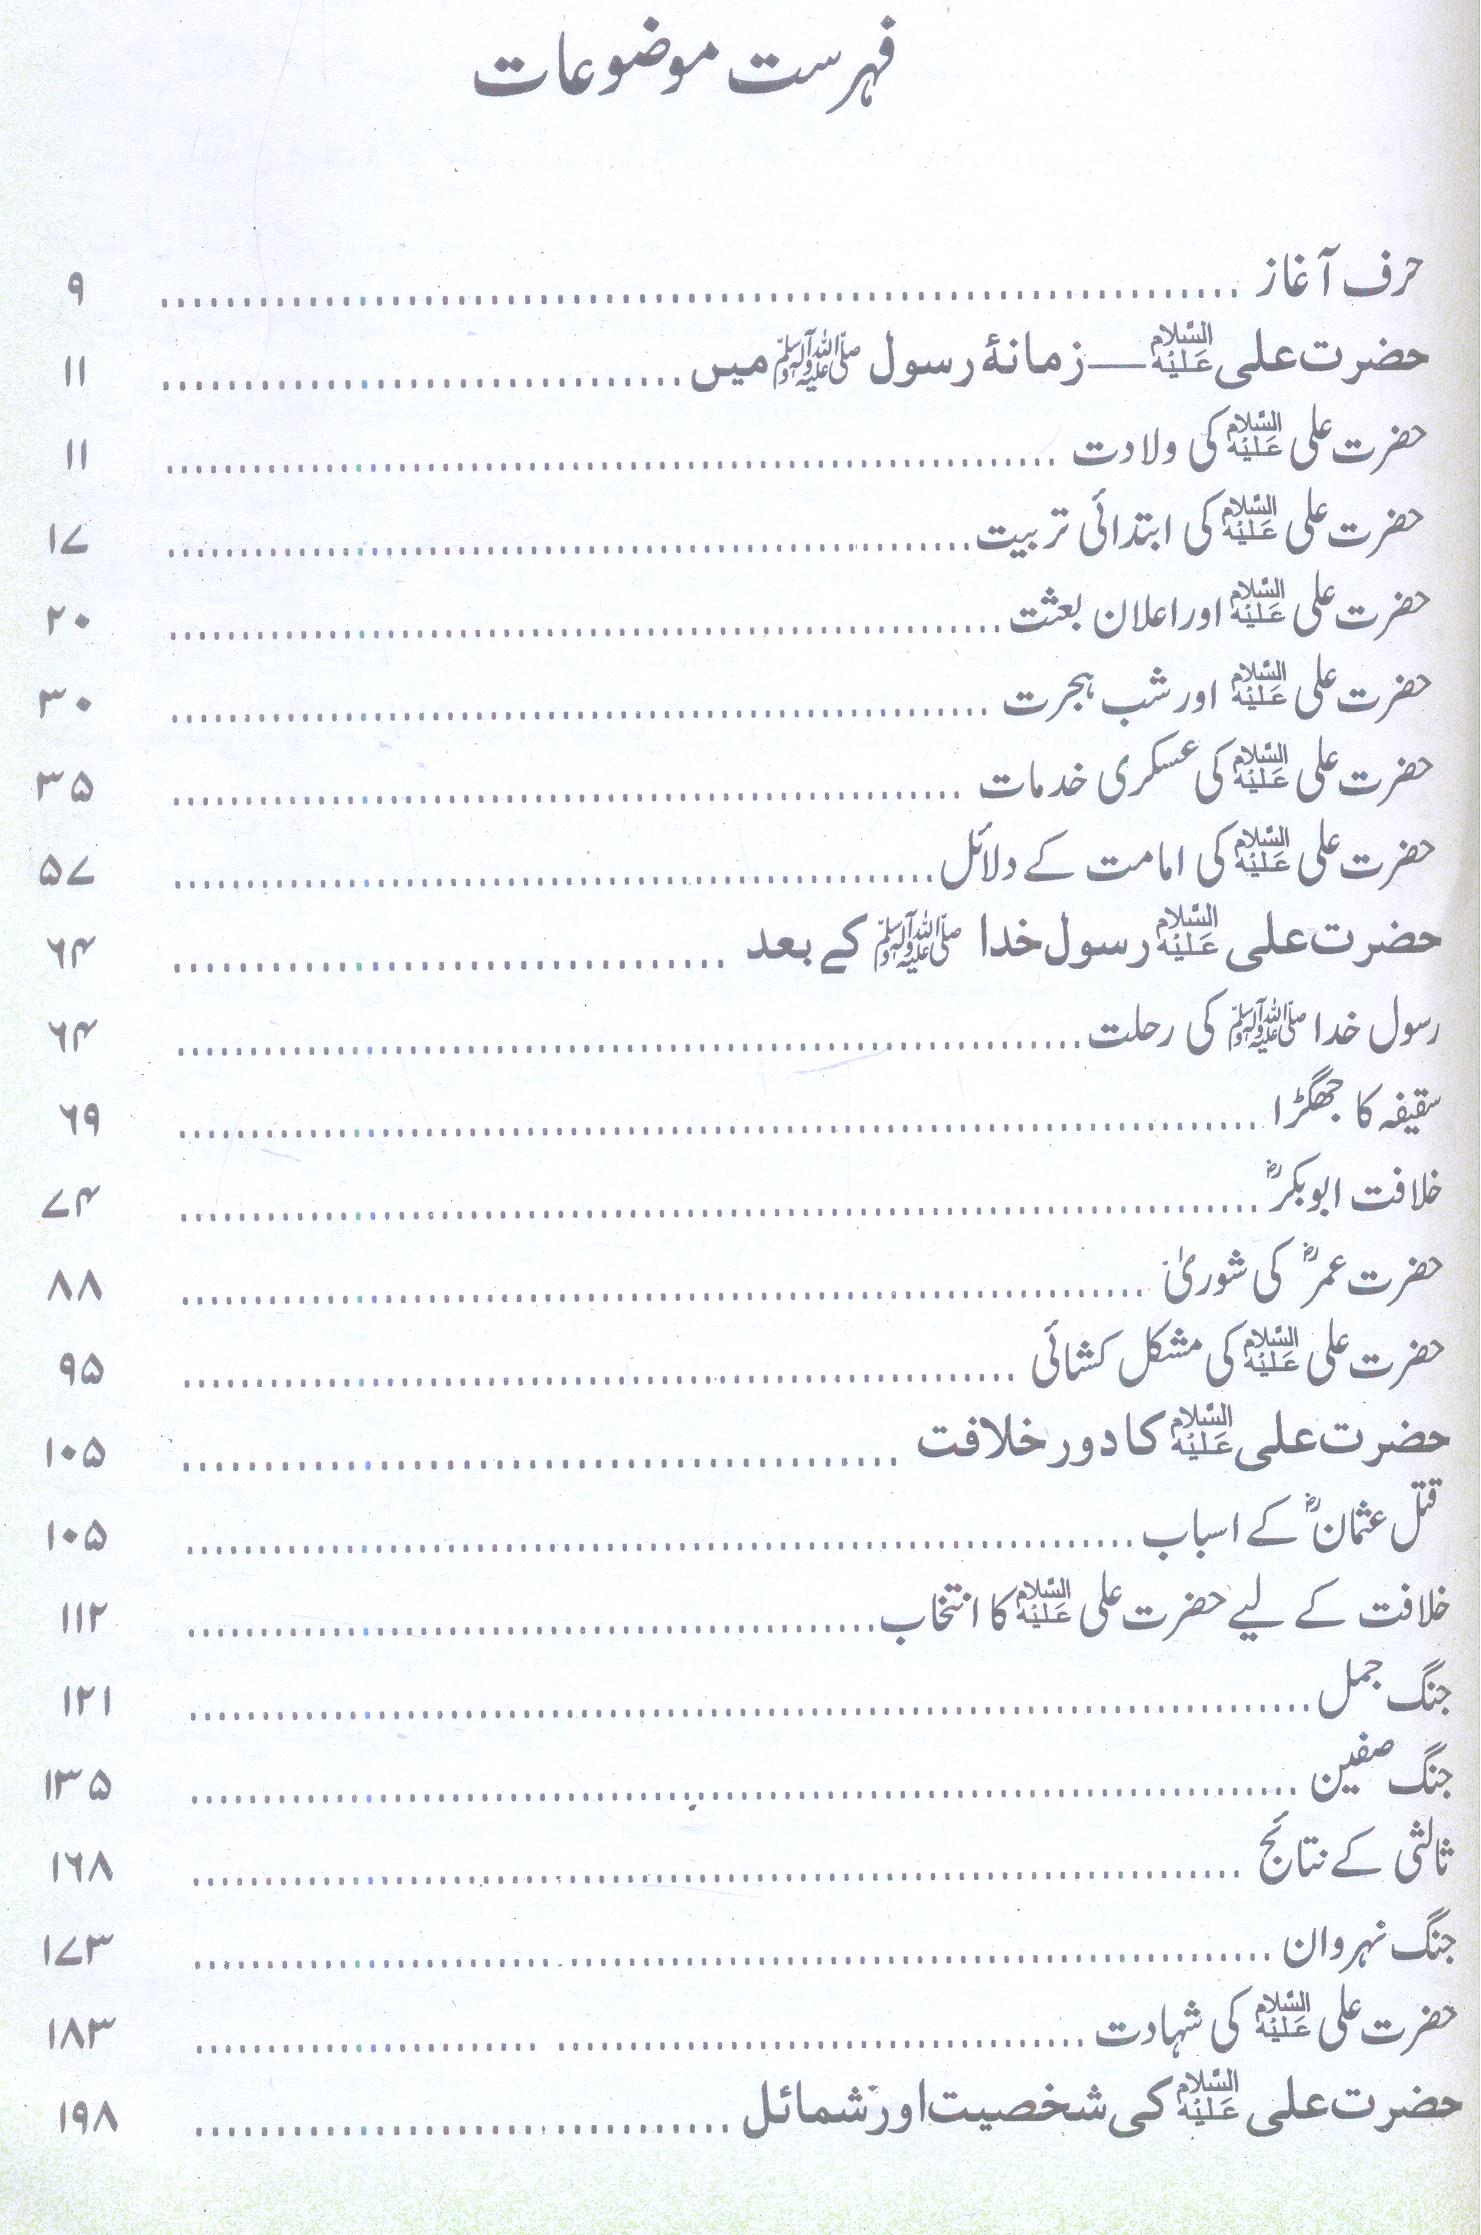 فہرست موضوعات
حرف آغاز ........ ۹
حضرت علی عَلَیْہِ السَّلام — زمانۂ رسول ﷺ میں ........ ۱۱
حضرت علی عَلَیْہِ السَّلام کی ولادت ........ ۱۱
حضرت علی عَلَیْہِ السَّلام کی ابتدائی تربیت ........ ۱۷
حضرت علی عَلَیْہِ السَّلام اور اعلان بعثت ........ ۲۰
حضرت علی عَلَیْہِ السَّلام اور شب ہجرت ........ ۳۰
حضرت علی عَلَیْہِ السَّلام کی عسکری خدمات ........ ۳۵
حضرت علی عَلَیْہِ السَّلام کی امامت کے دلائل ........ ۵۷
حضرت علی عَلَیْہِ السَّلام رسول خدا ﷺ کے بعد ........ ۶۴
رسول خدا ﷺ کی رحلت ........ ۶۴
سقیفہ کا جھگڑا ........ ۶۹
خلافت ابوبکرؓ ........ ۷۴
حضرت عمرؓ کی شوریٰ ........ ۸۸
حضرت علی عَلَیْہِ السَّلام کی مشکل کشائی ........ ۹۵
حضرت علی عَلَیْہِ السَّلام کا دور خلافت ........ ۱۰۵
قتل عثمانؓ کے اسباب ........ ۱۰۵
خلافت کے لیے حضرت علی عَلَیْہِ السَّلام کا انتخاب ........ ۱۱۲
جنگ جمل ........ ۱۲۱
جنگ صفین ........ ۱۳۵
ثالثی کے نتائج ........ ۱۶۸
جنگ نہروان ........ ۱۷۳
حضرت علی عَلَیْہِ السَّلام کی شہادت ........ ۱۸۳
حضرت علی عَلَیْہِ السَّلام کی شخصیت اور شمائل ........ ۱۹۸